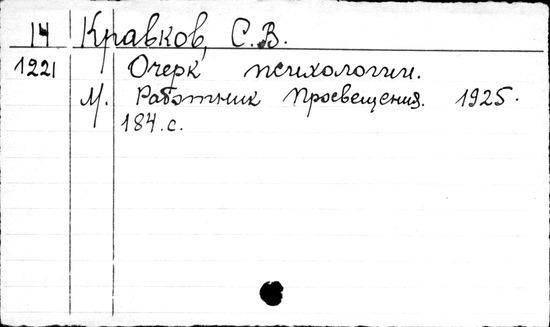 14 Кравков, С.В.
1221 Очерк психологии.
М. Работник Просвещения. 1925.
184.с.